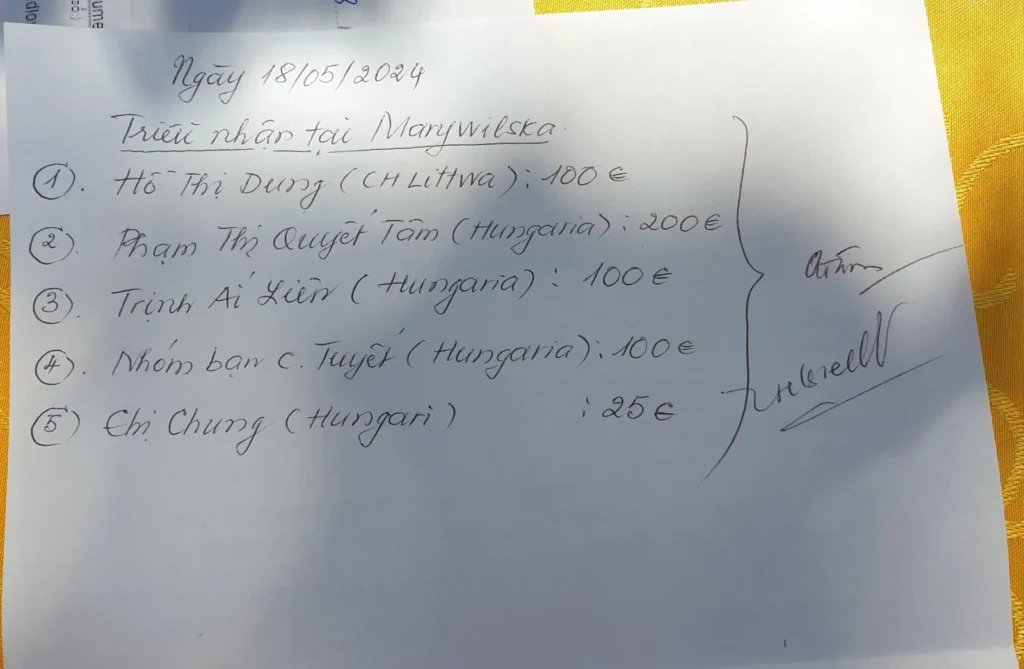 Ngày 18/05/2024
Triều nhận tại Marywilska.
①. Hồ Thị Dung (CH Littwa): 100 €
②. Phạm Thị Quyết Tâm (Hungaria): 200 €
③. Trịnh Ái Liên (Hungaria): 100 €
④. Nhóm bạn c. Tuyết (Hungaria): 100 €
⑤) Chị Chung (Hungari) : 25 €